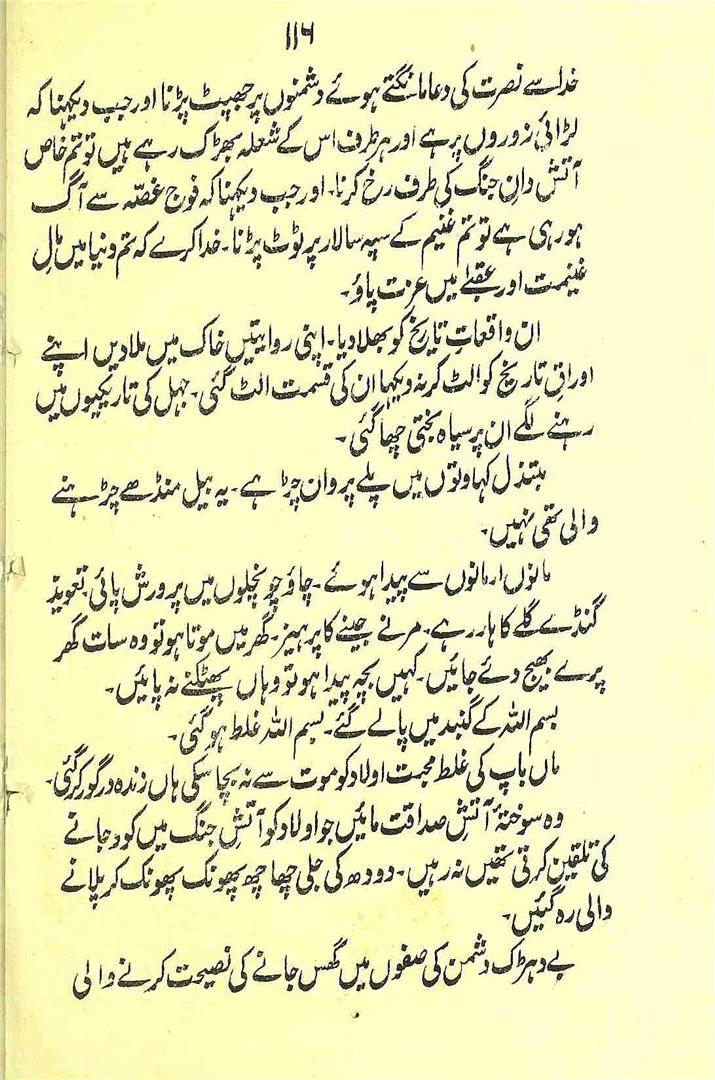 ۱۱۶
خدا سے نصرت کی دعا مانگتے ہوئے دشمنوں پر جھپٹ پڑنا اور جب دیکھنا کہ
لڑائی زوروں پر ہے اور ہر طرف اس کے شعلہ بھڑک رہے ہیں تو تم خاص
آتش دانِ جنگ کی طرف رخ کرنا۔ اور جب دیکھنا کہ فوج غصّہ سے آگ
ہو رہی ہے تو تم غنیم کے سپہ سالار پر ٹوٹ پڑنا۔ خدا کرے کہ تم دنیا میں مالِ
غنیمت اور عقبےٰ میں عزت پاؤ۔
ان واقعاتِ تاریخ کو بھلا دیا۔ اپنی روایتیں خاک میں ملا دیں اپنے
اوراقِ تاریخ کو الٹ کر نہ دیکھا ان کی قسمت الٹ گئی۔ جہل کی تاریکیوں میں
رہنے لگے ان پر سیاہ بختی چھا گئی۔
مبتذل کہاوتوں میں پلے پروان چڑا ہے۔ یہ بیل منڈھے چڑہنے
والی تھی نہیں۔
مانوں ارمانوں سے پیدا ہوئے۔ چاؤ چونچلوں میں پرورش پائی۔ تعویذ
گنڈے گلے کا ہار رہے۔ مرنے جینے کا پرہیز۔ گھر میں موتا ہو تو وہ سات گھر
پرے بھیج دئے جائیں۔ کہیں بچہ پیدا ہو تو وہاں پھٹکنے نہ پائیں۔
بسم اللہ کے گنبد میں پالے گئے۔ بسم اللہ غلط ہو گئی۔
ماں باپ کی غلط محبت اولاد کو موت سے نہ بچا سکی ہاں زندہ درگور کر گئی۔
وہ سوختۂ آتشِ صداقت مائیں جو اولاد کو آتشِ جنگ میں کود جانے
کی تلقین کرتی تھیں نہ رہیں۔ دودھ کی جلی چھاچھ پھونک پھونک کر پلانے
والی رہ گئیں۔
بے دہڑک دشمن کی صفوں میں گھس جانے کی نصیحت کرنے والی